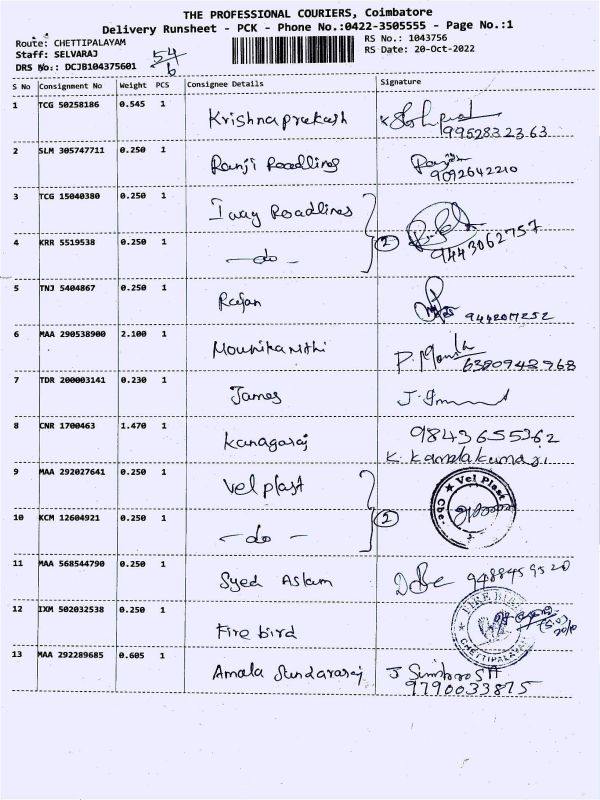 THE PROFESSIONAL COURIERS, Coimbatore
Delivery Runsheet - PCK - Phone No.:0422-3505555 - Page No.:1
Route: CHETTIPALAYAM
RS No.: 1043756
Staff: SELVARAJ
RS Date: 20-Oct-2022
DRS No.: DCJB104375601
54/6
S No Consignment No Weight PCS Consignee Details Signature
1 TCG 50258186 0.545 1 Krishnaprakash
9952832363
2 SLM 305747711 0.250 1 Ranji Roadlines
9092642210
3 TCG 15040380 0.250 1 Iway Roadlines
2
4 KRR 5519538 0.250 1 -do-
9443062757
5 TNJ 5404867 0.250 1 Rajan
6 MAA 290538900 2.100 1 Mounikanithi P. Mouni
6380942968
7 TDR 200003141 0.230 1 James
8 CNR 1700463 1.470 1 Kanagaraj 9843655362
K. Kamalakumari
9 MAA 292027641 0.250 1 Vel plast
★ Vel Plast ★ Cbe-
2
10 KCM 12604921 0.250 1 -do-
11 MAA 568544790 0.250 1 Syed Aslam 9488459520
12 IXM 502032538 0.250 1 Fire bird
FIRE BIRD CHETTIPALAYAM
13 MAA 292289685 0.605 1 Amala Sundararaj
9790033815